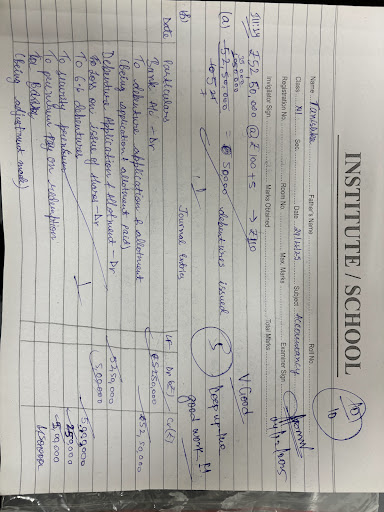 INSTITUTE / SCHOOL
Name Tanishka Father's Name Roll No.
Class XI Sec. Date 24/11/25 Subject Accountancy
Registration No. Room No. Max. Marks Examiner Sign.
Invigilator Sign. Marks Obtained Total Marks
10
10
04/12/2025
₹52,50,000 @ ₹100 + 5 → ₹110
V. Good
(a) 52,50,000 = 50000 debentures issued
105
5
Keep up the
good work
(b) Journal Entries
Date Particulars LF Dr (₹) Cr (₹)
Bank A/c - Dr 5250000
To debenture application & allotment 52,50,000
(Being application & allotment paid)
Debenture Application & Allotment - Dr 52,50,000
To Loss on issue of shares - Dr 5,00,000
To 6% debentures
To security premium 250,000
To premium pay on redumption 5,00,000
(Being adjustment made)